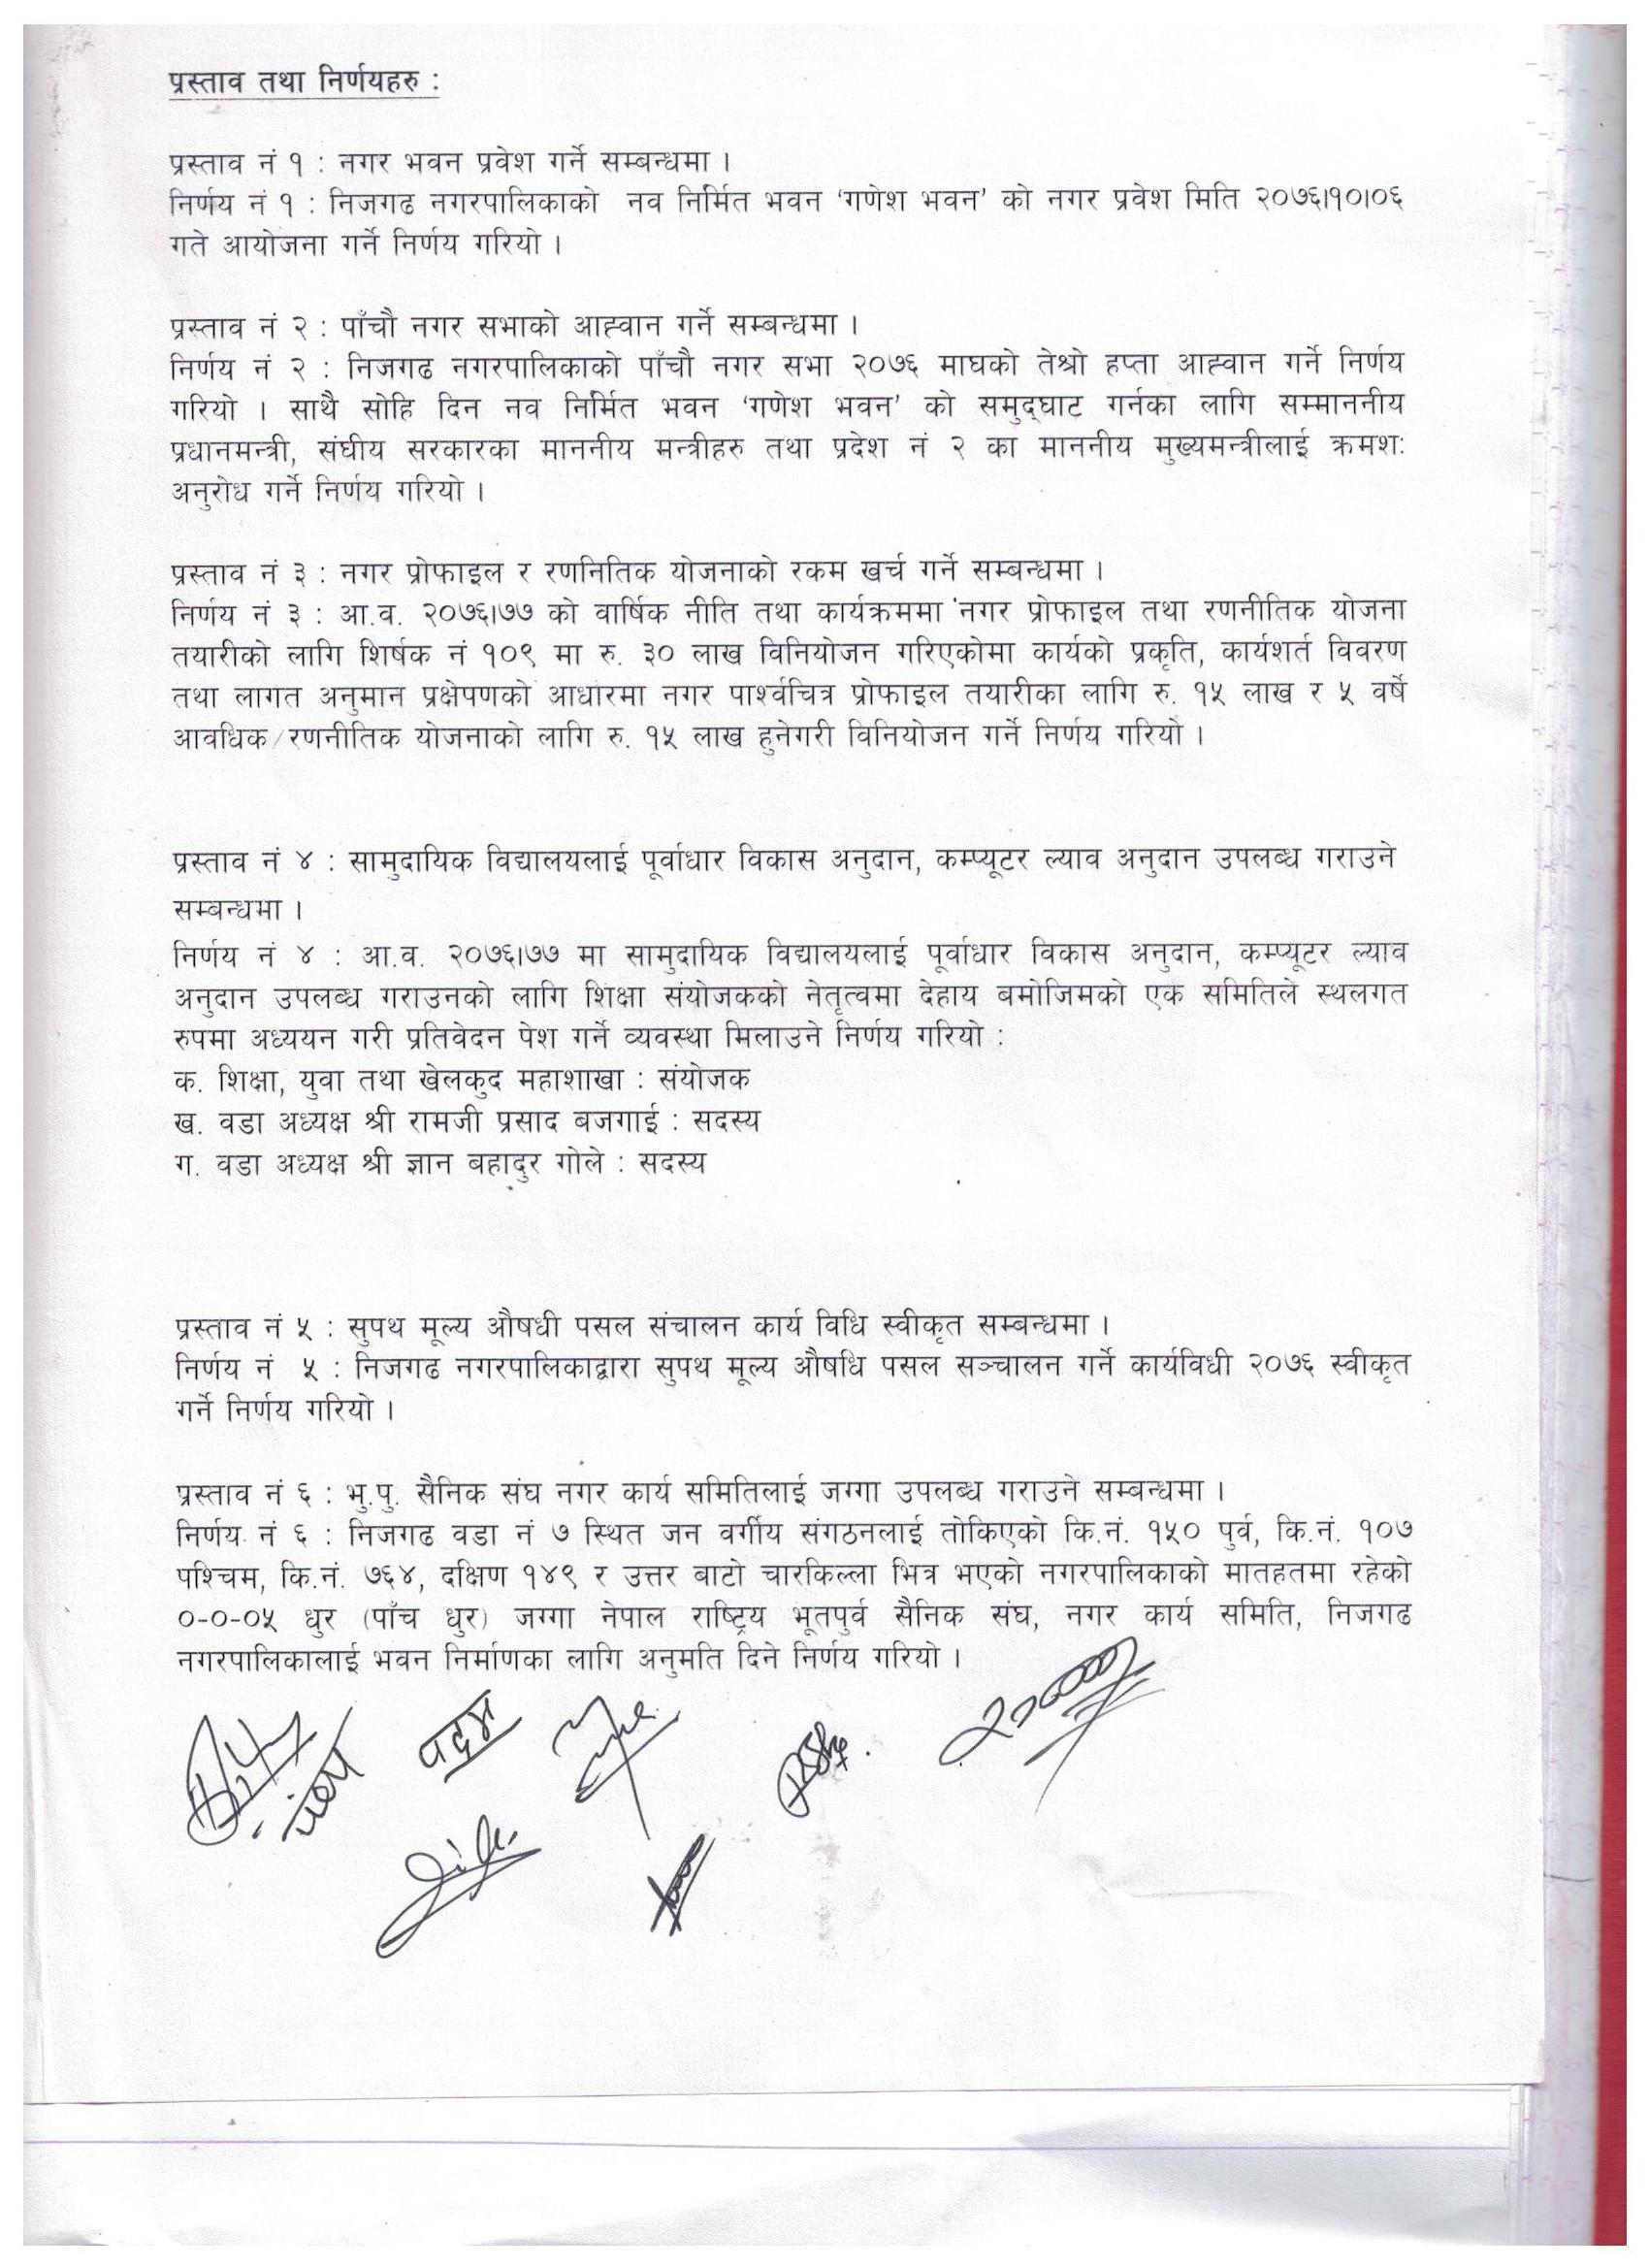 प्रस्ताव तथा निर्णयहरु :
प्रस्ताव नं १ : नगर भवन प्रवेश गर्ने सम्बन्धमा ।
निर्णय नं १ : निजगढ नगरपालिकाको नव निर्मित भवन ‘गणेश भवन’ को नगर प्रवेश मिति २०७६।१०।०६
गते आयोजना गर्ने निर्णय गरियो ।
प्रस्ताव नं २ : पाँचौ नगर सभाको आह्वान गर्ने सम्बन्धमा ।
निर्णय नं २ : निजगढ नगरपालिकाको पाँचौ नगर सभा २०७६ माघको तेश्रो हप्ता आह्वान गर्ने निर्णय
गरियो । साथै सोहि दिन नव निर्मित भवन ‘गणेश भवन’ को समुद्घाट गर्नका लागि सम्माननीय
प्रधानमन्त्री, संघीय सरकारका माननीय मन्त्रीहरु तथा प्रदेश नं २ का माननीय मुख्यमन्त्रीलाई क्रमशः
अनुरोध गर्ने निर्णय गरियो ।
प्रस्ताव नं ३ : नगर प्रोफाइल र रणनितिक योजनाको रकम खर्च गर्ने सम्बन्धमा ।
निर्णय नं ३ : आ.व. २०७६।७७ को वार्षिक नीति तथा कार्यक्रममा नगर प्रोफाइल तथा रणनीतिक योजना
तयारीको लागि शिर्षक नं १०९ मा रु. ३० लाख विनियोजन गरिएकोमा कार्यको प्रकृति, कार्यशर्त विवरण
तथा लागत अनुमान प्रक्षेपणको आधारमा नगर पार्श्वचित्र प्रोफाइल तयारीका लागि रु. १५ लाख र ५ वर्षे
आवधिक/रणनीतिक योजनाको लागि रु. १५ लाख हुनेगरी विनियोजन गर्ने निर्णय गरियो ।
प्रस्ताव नं ४ : सामुदायिक विद्यालयलाई पूर्वाधार विकास अनुदान, कम्प्यूटर ल्याव अनुदान उपलब्ध गराउने
सम्बन्धमा ।
निर्णय नं ४ : आ.व. २०७६।७७ मा सामुदायिक विद्यालयलाई पूर्वाधार विकास अनुदान, कम्प्यूटर ल्याव
अनुदान उपलब्ध गराउनको लागि शिक्षा संयोजकको नेतृत्वमा देहाय बमोजिमको एक समितिले स्थलगत
रुपमा अध्ययन गरी प्रतिवेदन पेश गर्ने व्यवस्था मिलाउने निर्णय गरियो :
क. शिक्षा, युवा तथा खेलकुद महाशाखा : संयोजक
ख. वडा अध्यक्ष श्री रामजी प्रसाद बजगाई : सदस्य
ग. वडा अध्यक्ष श्री ज्ञान बहादुर गोले : सदस्य
प्रस्ताव नं ५ : सुपथ मूल्य औषधी पसल संचालन कार्य विधि स्वीकृत सम्बन्धमा ।
निर्णय नं ५ : निजगढ नगरपालिकाद्वारा सुपथ मूल्य औषधि पसल सञ्चालन गर्ने कार्यविधी २०७६ स्वीकृत
गर्ने निर्णय गरियो ।
प्रस्ताव नं ६ : भु.पु. सैनिक संघ नगर कार्य समितिलाई जग्गा उपलब्ध गराउने सम्बन्धमा ।
निर्णय नं ६ : निजगढ वडा नं ७ स्थित जन वर्गीय संगठनलाई तोकिएको कि.नं. १५० पुर्व, कि.नं. १०७
पश्चिम, कि.नं. ७६४, दक्षिण १४९ र उत्तर बाटो चारकिल्ला भित्र भएको नगरपालिकाको मातहतमा रहेको
०-०-०५ धुर (पाँच धुर) जग्गा नेपाल राष्ट्रिय भूतपुर्व सैनिक संघ, नगर कार्य समिति, निजगढ
नगरपालिकालाई भवन निर्माणका लागि अनुमति दिने निर्णय गरियो ।
पदम